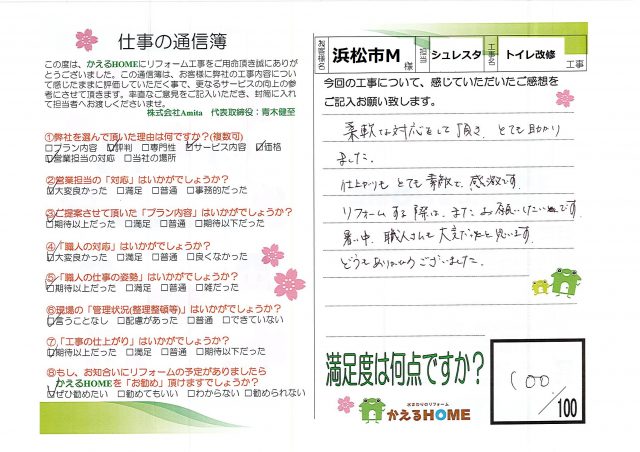 仕事の通信簿
この度は、かえるHOMEにリフォーム工事をご用命頂き誠にありが
とうございました。この通信簿は、お客様に弊社の工事内容につい
て感じたままに評価していただく事で、更なるサービスの向上の参
考にさせて頂きます。率直なご意見をご記入いただき、封筒に入れ
て担当者へお渡しくださいませ。
株式会社Amita 代表取締役：青木健至
①弊社を選んで頂いた理由は何ですか?(複数可)
□プラン内容 ☑評判 □専門性 ☑サービス内容 ☑価格
☑営業担当の対応 □当社の場所
②営業担当の「対応」はいかがでしょうか?
☑大変良かった □満足 □普通 □事務的だった
③ご提案させて頂いた「プラン内容」はいかがでしょうか?
☑期待以上だった □満足 □普通 □期待以下だった
④「職人の対応」はいかがでしょうか?
☑大変良かった □満足 □普通 □良くなかった
⑤「職人の仕事の姿勢」はいかがでしょうか?
☑期待以上だった □満足 □普通 □雑だった
⑥現場の「管理状況(整理整頓等)」はいかがでしょうか?
☑言うことなし □配慮があった □普通 □できていない
⑦「工事の仕上がり」はいかがでしょうか?
☑期待以上だった □満足 □普通 □期待以下だった
⑧もし、お知合いにリフォームの予定がありましたら
かえるHOMEを「お勧め」頂けますでしょうか?
☑ぜひ勧めたい □勧めてもいい □わからない □勧められない
お客様名 浜松市M 様 担当 シュレスタ 工事名 トイレ改修 工事
今回の工事について、感じていただいたご感想を
ご記入お願い致します。
柔軟な対応をして頂き、とても助かり
ました。
仕上がりもとても素敵で、感激です。
リフォームする際は、またお願いしたいです。
暑い中、職人さんも大変だったと思います。
どうもありがとうございました。
満足度は何点ですか?
100/100
水まわりのリフォーム
かえるHOME